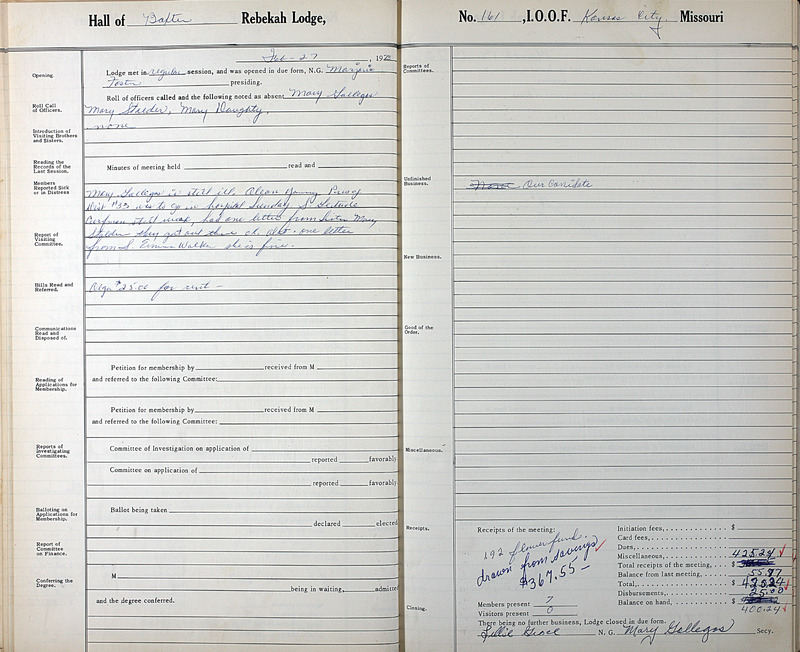 Hall of Baxter Rebekah Lodge,
Feb-27, 192
Opening.
Lodge met in regular session, and was opened in due form, N.G. Marjorie
Foster presiding.
Roll Call of Officers.
Roll of officers called and the following noted as absent Mary Gallegos
Mary Stalder, Mary Daughty.
Introduction of Visiting Brothers and Sisters.
none
Reading the Records of the Last Session.
Minutes of meeting held read and
Members Reported Sick or in Distress
Mary Gallegos is still ill,
Dist #33 was to go in hospital Sunday S. Gertrude
still weak, had one letter from Sister Mary
Report of Visiting Committee.
Stalder they got out there ok. also one letter
from S. Emma Walker she is fine.
Bills Read and Referred.
$25.00 for rent -
Communications Read and Disposed of.
Petition for membership by received from M
Reading of Applications for Membership.
and referred to the following Committee:
Petition for membership by received from M
and referred to the following Committee:
Reports of Investigating Committees.
Committee of Investigation on application of
reported favorably
Committee on application of
reported favorably
Balloting on Applications for Membership.
Ballot being taken
declared elected
Report of Committee on Finance.
Conferring the Degree.
M
being in waiting, admitted
and the degree conferred.
No. 161, I.O.O.F. Kansas City, Missouri
Reports of Committees.
Unfinished Business.
None Our Canidate
New Business.
Good of the Order.
Miscellaneous.
Receipts.
Receipts of the meeting:
1.92 flower fund.
drawn from savings
$367.55-
Initiation fees, $
Card fees,
Dues,
Miscellaneous, 425.24
Total receipts of the meeting, $
Balance from last meeting, 55.77
Total, $ 425.24
Disbursements, 25.00
Balance on hand, $
400.24
Members present 7
Visitors present 0
Closing.
There being no further business, Lodge closed in due form.
Lillie Grace N. G. Mary Gallegos Secy.